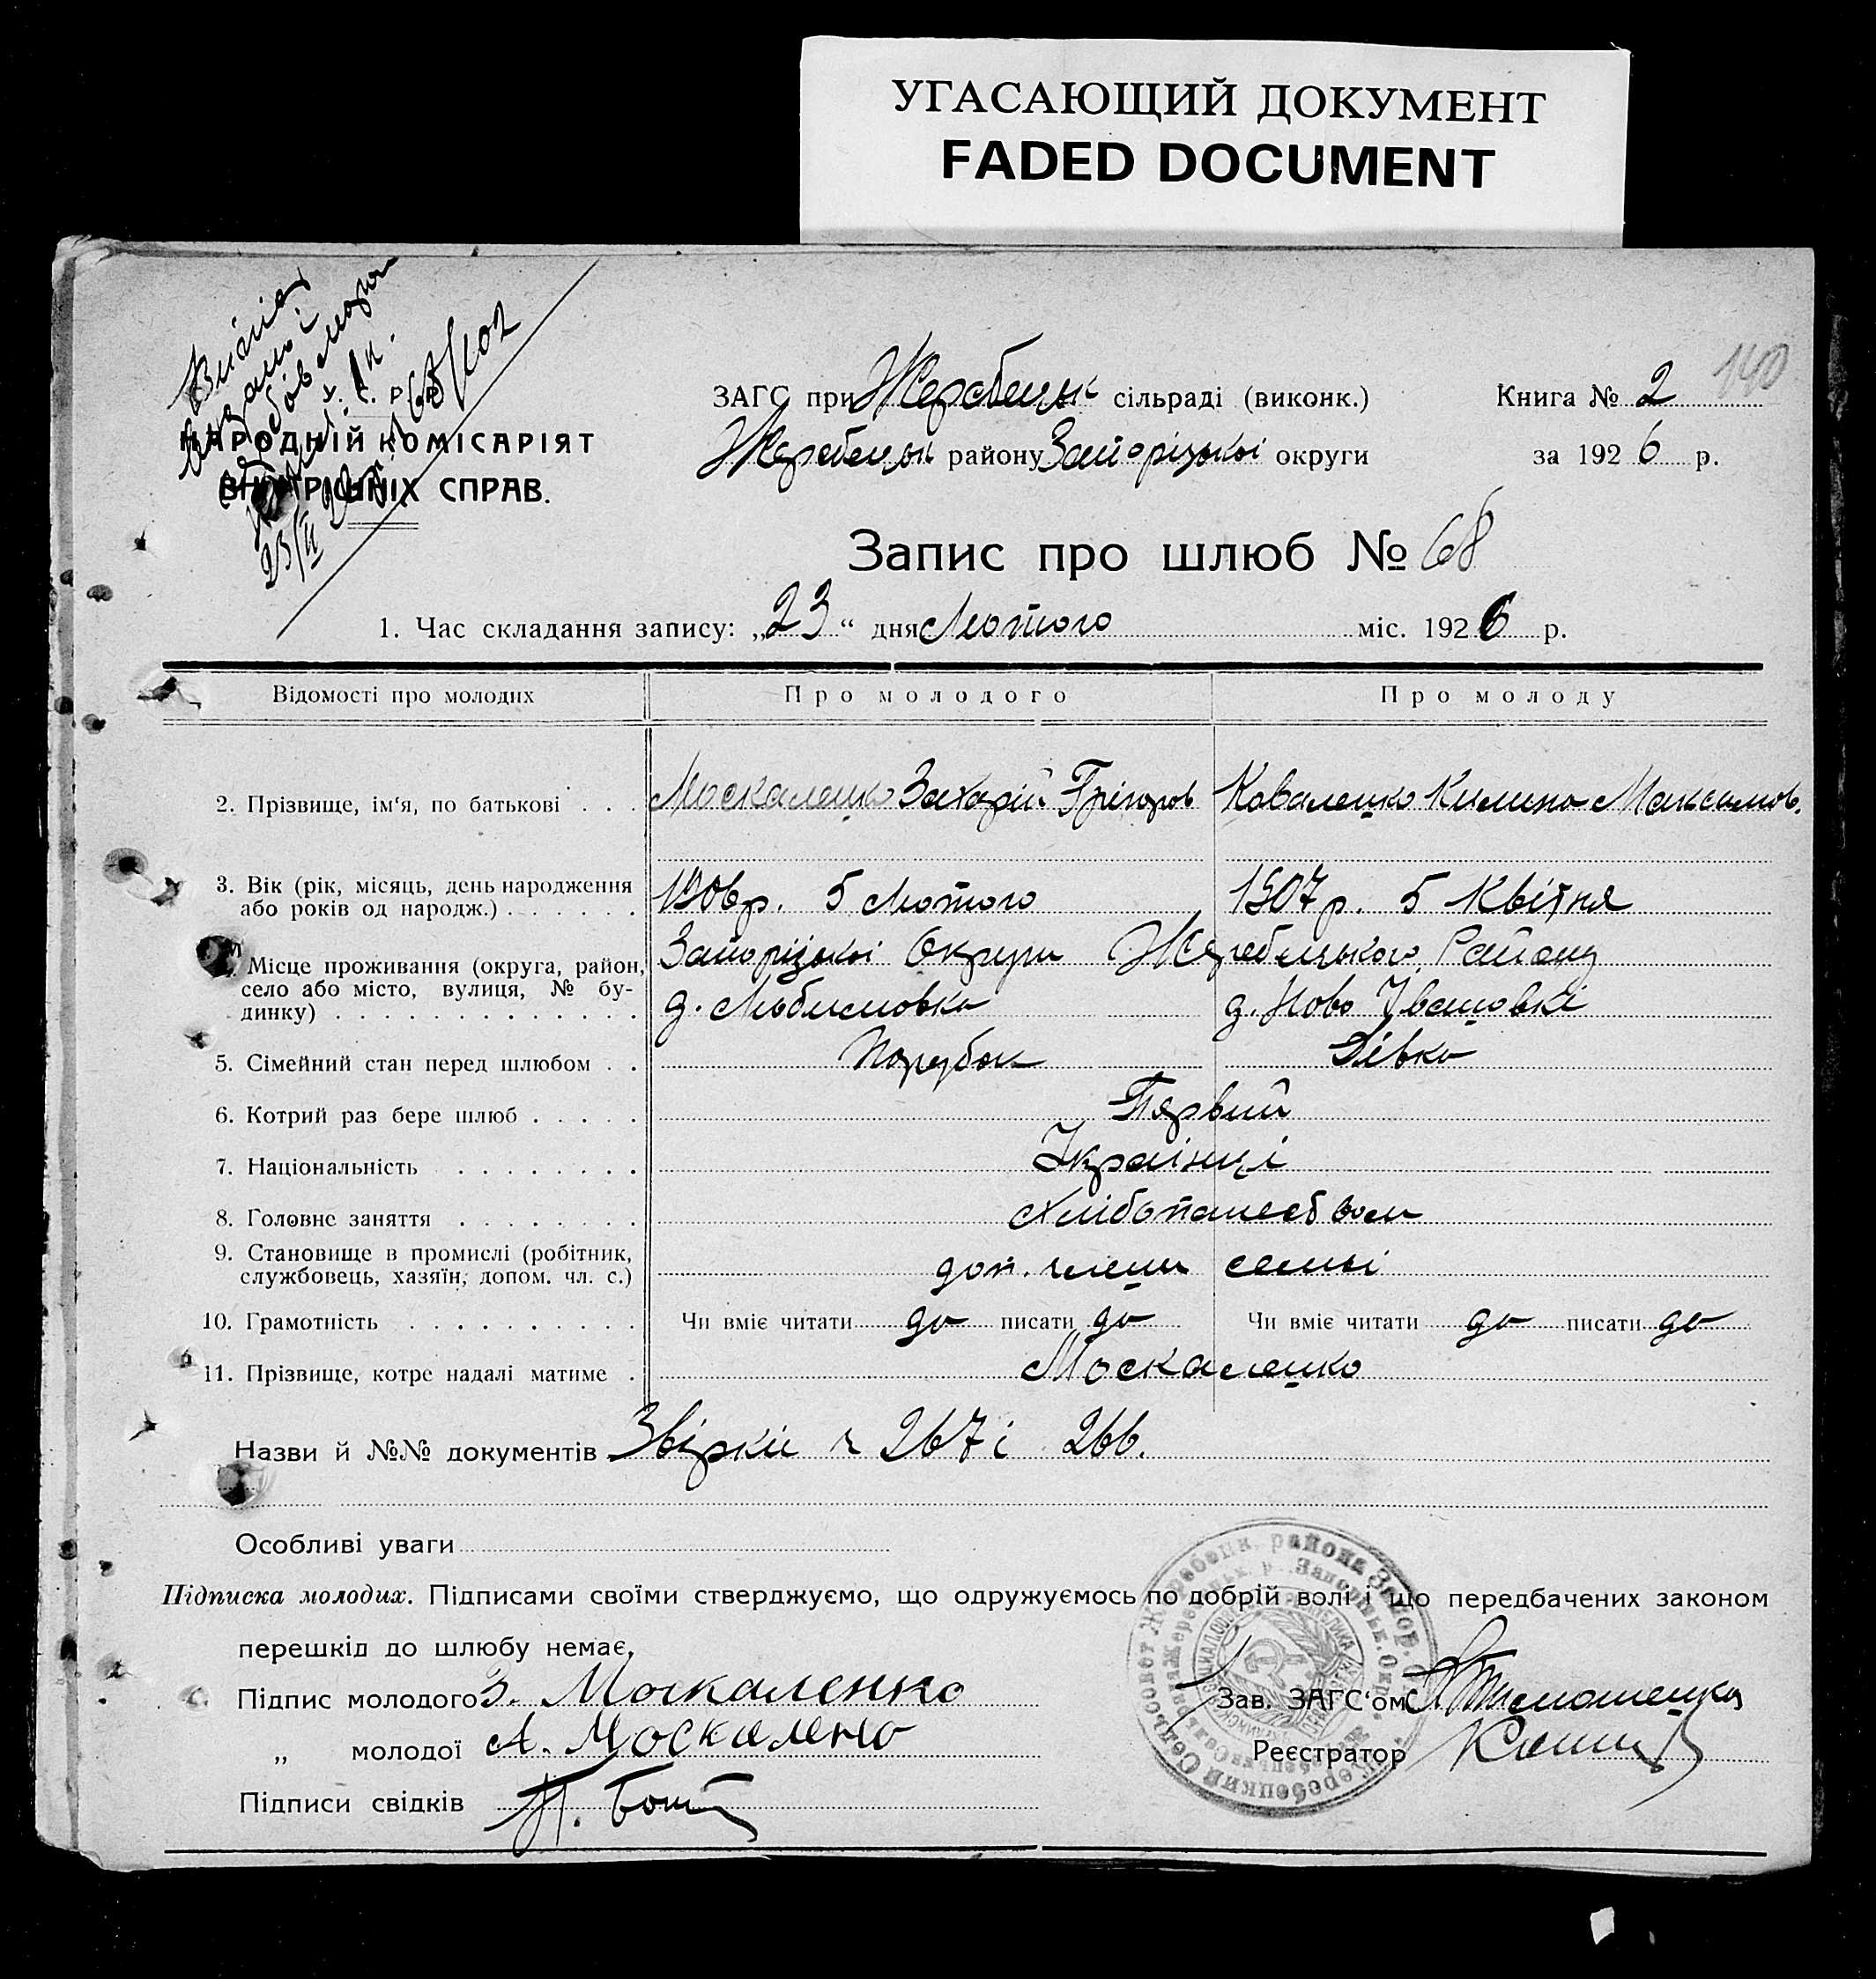 УГАСАЮЩИЙ ДОКУМЕНТ
FADED DOCUMENT
140
У. С. Р. Р.
НАРОДНІЙ КОМІСАРІЯТ
ВНУТРІШНІХ СПРАВ.
ЗАГС при Жеребецьк сільраді (виконк.) Книга № 2
Жеребецьк району Запорізької округи за 1926 р.
Запис про шлюб № 68
1. Час складання запису: „23“ дня Лютого міс. 1926 р.
Відомості про молодих Про молодого Про молоду
2. Прізвище, ім‘я, по батькові . . . Москаленко Захарій Грігоров Коваленко Килина Максимов.
3. Вік (рік, місяць, день народження 1906р. 5 Лютого 1907р. 5 Квітня
або років од народж.) . . . . . .
Місце проживання (округа, район, Запорізької Округи Жеребецького Району
село або місто, вулиця, № бу- д. Любимовка д. Ново Івановкі
динку) . . . . . . . . . . . . .
5. Сімейний стан перед шлюбом . . Парубок Дівка
6. Котрий раз бере шлюб . . . . . Первий
7. Національність . . . . . . . Українці
8. Головне заняття . . . . . . . Хлібопашеством
9. Становище в промислі (робітник, доп. члени семьі
службовець, хазяїн, допом. чл. с.)
10. Грамотність . . . . . . . . . . Чи вміє читати да писати да Чи вміє читати да писати да
11. Прізвище, котре надалі матиме . Москаленко
Назви й №№ документів Звірки 267 і 266.
Особливі уваги
Підписка молодих. Підписами своїми стверджуємо, що одружуємось по добрій волі і що передбачених законом
перешкід до шлюбу немає.
Підпис молодого З. Москаленко Зав. ЗАГС‘ом Тимошенко
„ молодої А. Москалено Реєстратор
Підписи свідків